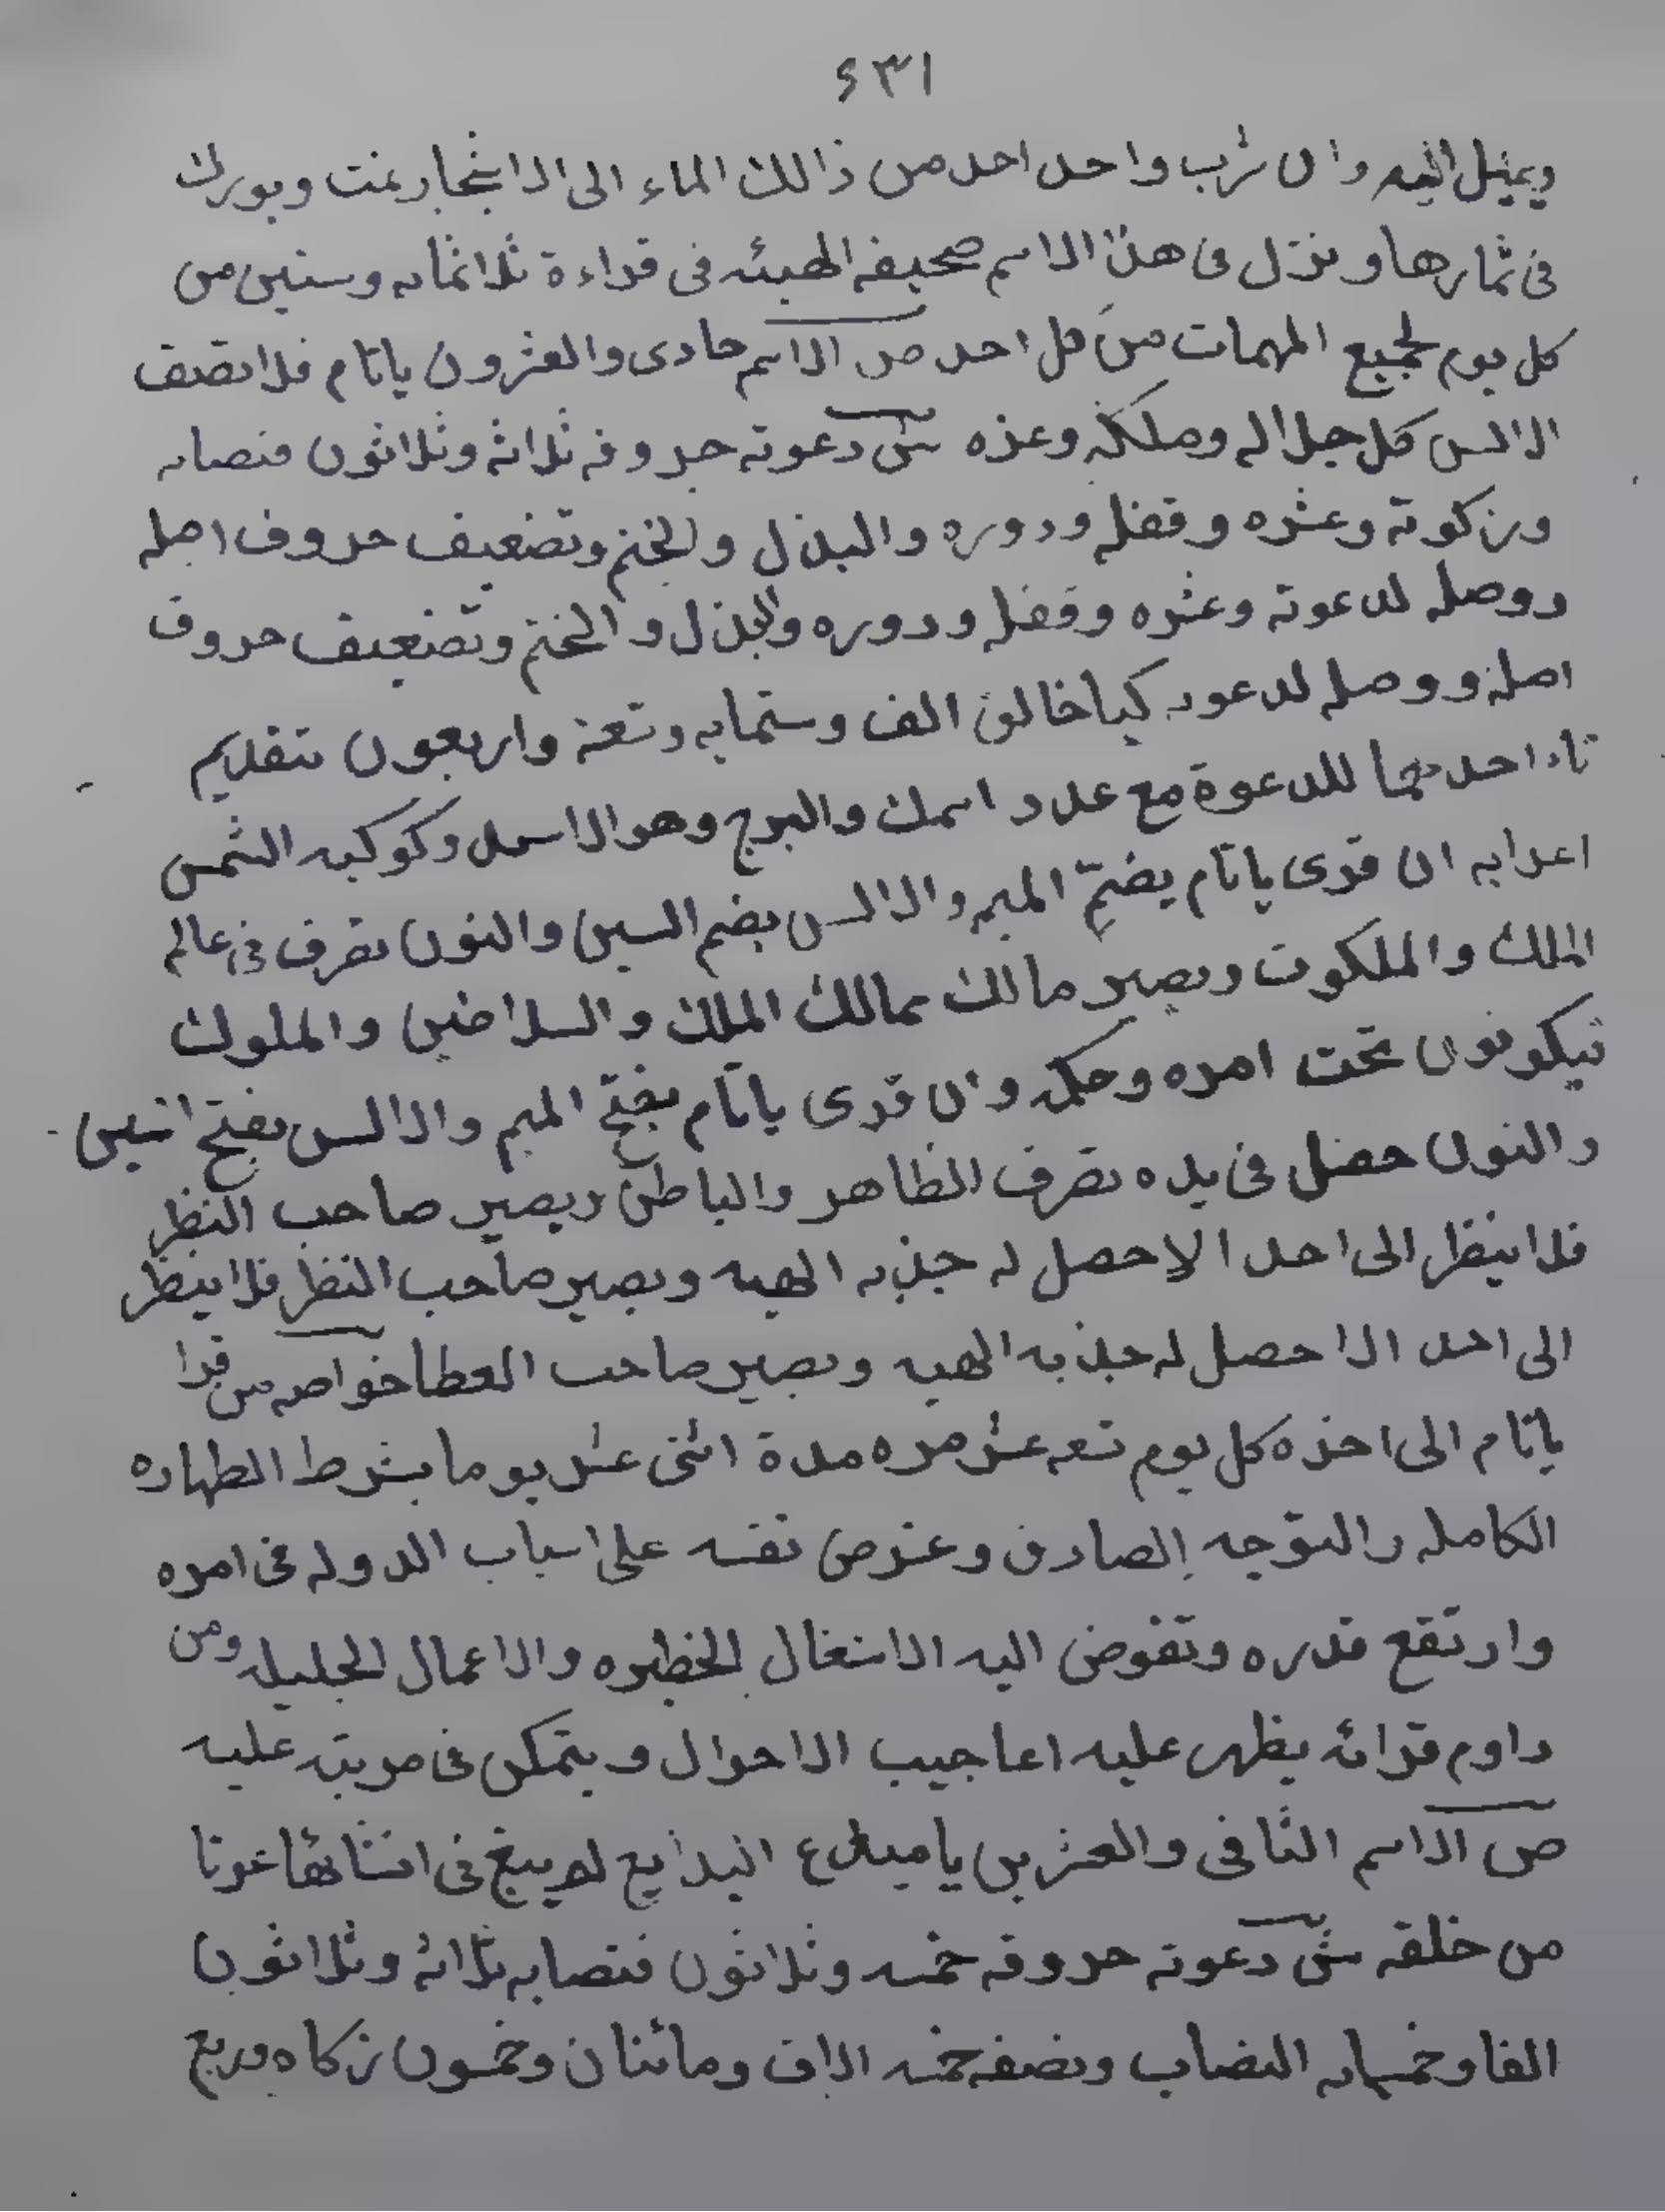 ٤٣١
ويميل اليه وان شرب واحد احد من ذالك الماء الى الاشجار نمت وبورك
فى ثمارها ونزل فى هذا الاسم صحيفه الهيئه فى قراءة ثلاثمايه وستين من
كل يوم لجميع المهمات من كل احد ص الاسم حادى والعشرون ياتام فلا تصف
الالسن كل جلاله وملكه وعزه ش دعوته حروفه ثلاثة وثلاثون فنصابه
وزكوته وعشره وقفله ودوره والبذل والختم وتضعيف حروف اصله
دوصله لدعوته وعشره وقفله ودوره والبذل والختم وتضعيف حروف
اصله ووصله لدعوته كياخالق الف وستمايه وتعة واربعون بتقديم
تاء احدهما للدعوة مع عدد اسمك والبرج وهو الاسد وكوكبه الشمس
اعرابه ان قرى ياتام بضم الميم والالسن بضم السين والنون تصرف فى عالم
الملك والملكوت ويصير مالك ممالك الملك والسلاطين والملوك
فيكونون تحت امره وحكمه وان قرى ياتام بفتح الميم والالسن بفتح السين
والنون حصل فى يده تصرف الظاهر والباطن ويصير صاحب النظر
فلا ينظر الى احد الا حصل له جذبه الهيه ويصير صاحب النظر فلا ينظر
الى احد الا حصل له جذبه الهيه ويصير صاحب العطا خواصه من قرا
ياتام الى اخذه كل يوم تعه عشر مره مدة اثنى عشر يوما بشرط الطهاره
الكامله والتوجه الصادق وعرض نفسه على اسباب الدوله فى امره
وارتقع قدره وتفوض اليه الاشغال الخطيره والاعمال الجليله ومن
داوم قرائه يظهر عليه اعاجيب الاحوال ويتمكن فى مرتبته عليه
ص الاسم الثانى والعشرين يامبدع البدايع لم يبغ فى انشائها عونا
من خلقه ش دعوته حروفه خمسه وثلاثون فنصابه ثلاثه وثلاثون
الفا وخمسمايه النصاب ونصفه خمسه الاف ومائتان وخمسون زكاه وربع